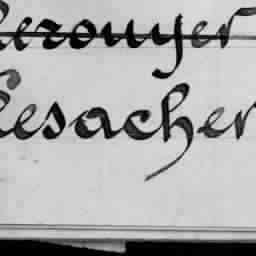 Keromyer
Lesacher